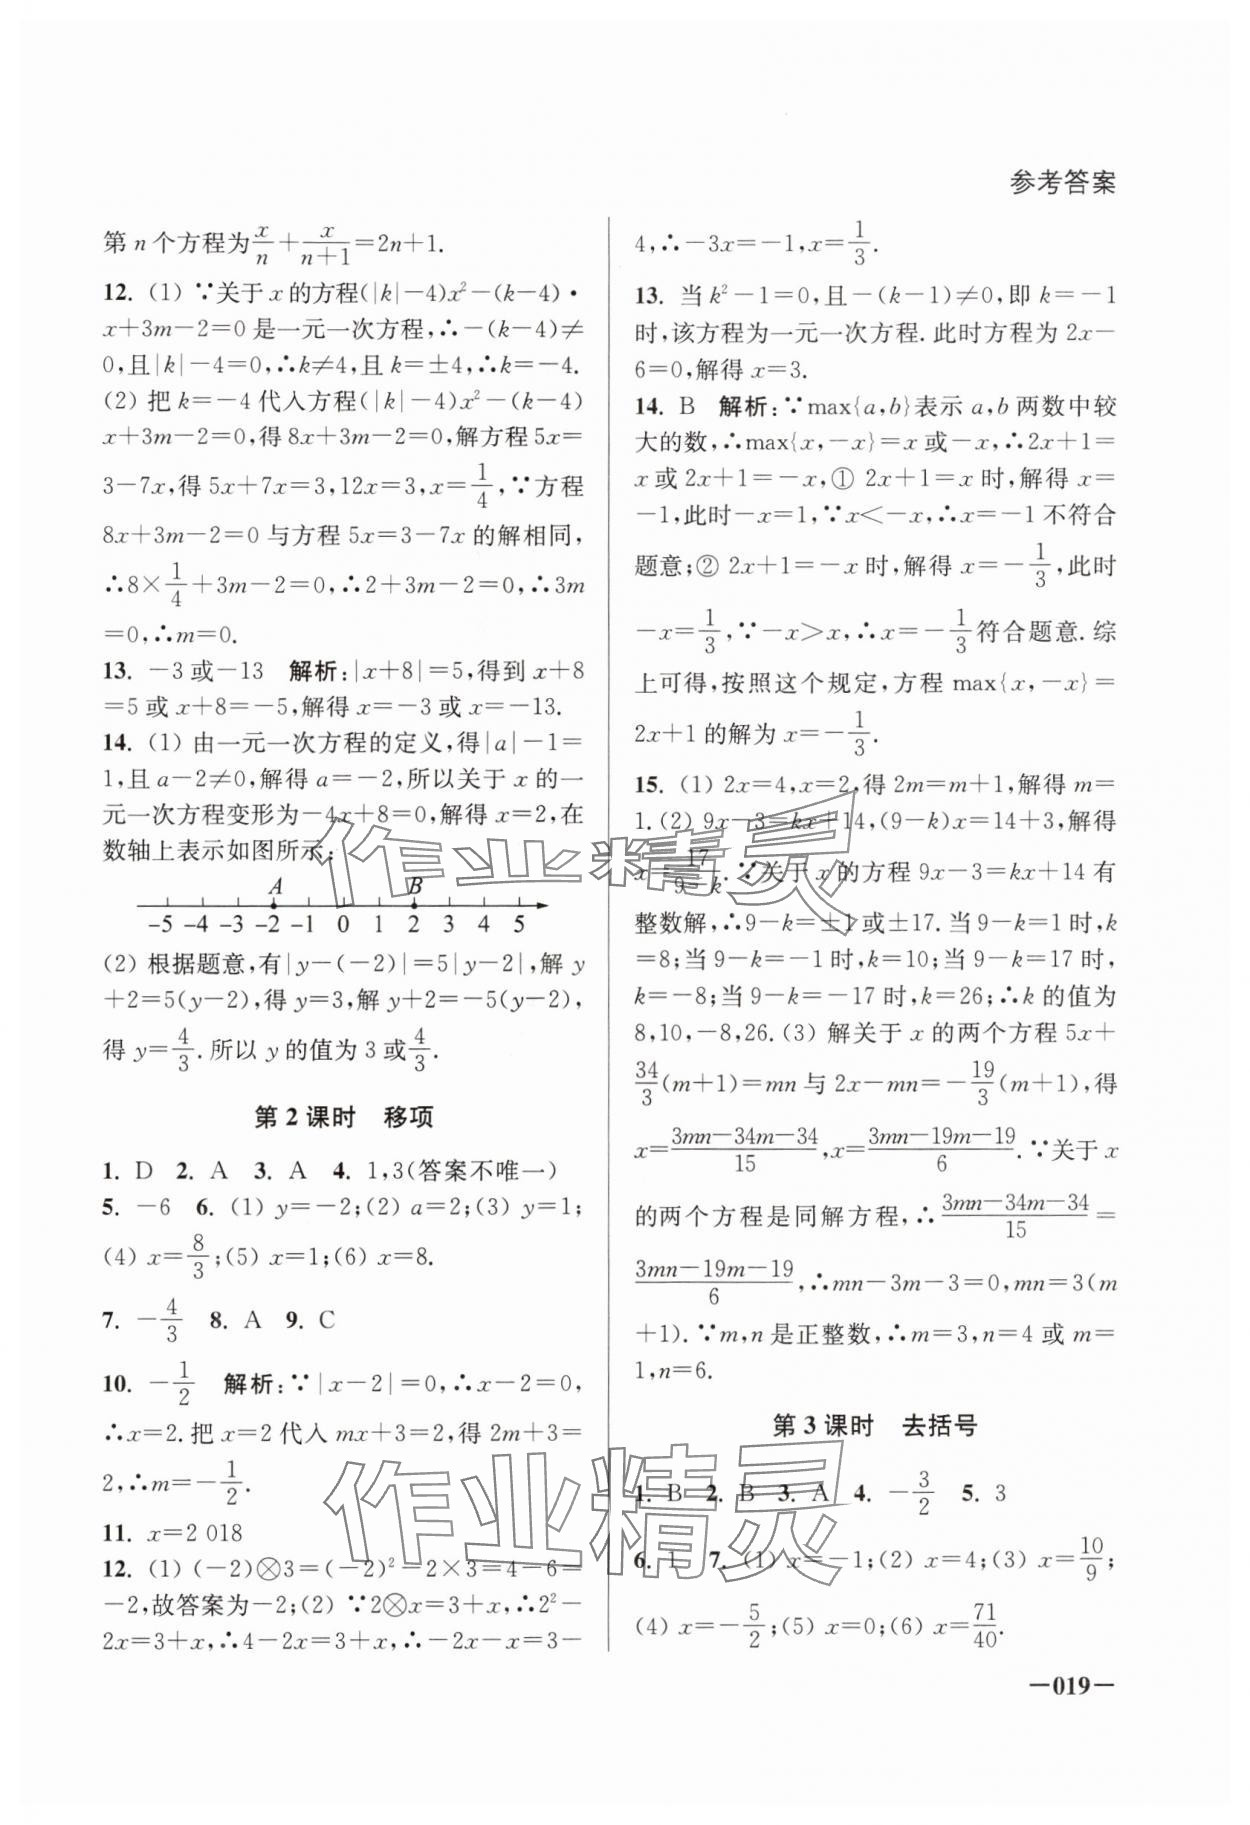 参考答案
第 n 个方程为x/n+x/(n+1)=2n+1.
12. (1) ∵关于 x 的方程(|k|-4)x²-(k-4)·
x+3m-2=0 是一元一次方程,∴-(k-4)≠
0,且|k|-4=0,∴k≠4,且 k=±4,∴k=-4.
(2) 把 k=-4 代入方程(|k|-4)x²-(k-4)
x+3m-2=0,得 8x+3m-2=0,解方程 5x=
3-7x,得 5x+7x=3,12x=3,x=1/4,∵方程
8x+3m-2=0 与方程 5x=3-7x 的解相同,
∴8×1/4+3m-2=0,∴2+3m-2=0,∴3m
=0,∴m=0.
13. -3 或-13 解析:|x+8|=5,得到 x+8
=5 或 x+8=-5,解得 x=-3 或 x=-13.
14. (1) 由一元一次方程的定义,得|a|-1=
1,且 a-2≠0,解得 a=-2,所以关于 x 的一
元一次方程变形为-4x+8=0,解得 x=2,在
数轴上表示如图所示:
A B
-5 -4 -3 -2 -1 0 1 2 3 4 5
(2) 根据题意,有|y-(-2)|=5|y-2|,解 y
+2=5(y-2),得 y=3,解 y+2=-5(y-2),
得 y=4/3.所以 y 的值为 3 或4/3.
第 2 课时 移项
1. D 2. A 3. A 4. 1,3(答案不唯一)
5. -6 6. (1) y=-2;(2) a=2;(3) y=1;
(4) x=8/3;(5) x=1;(6) x=8.
7. -4/3 8. A 9. C
10. -1/2 解析:∵|x-2|=0,∴x-2=0,
∴x=2.把 x=2 代入 mx+3=2,得 2m+3=
2,∴m=-1/2.
11. x=2 018
12. (1) (-2)⊗3=(-2)²-2×3=4-6=
-2,故答案为-2;(2) ∵2⊗x=3+x,∴2²-
2x=3+x,∴4-2x=3+x,∴-2x-x=3-
4,∴-3x=-1,x=1/3.
13. 当 k²-1=0,且-(k-1)≠0,即 k=-1
时,该方程为一元一次方程.此时方程为 2x-
6=0,解得 x=3.
14. B 解析:∵max{a,b}表示 a,b 两数中较
大的数,∴max{x,-x}=x 或-x,∴2x+1=
x 或 2x+1=-x,① 2x+1=x 时,解得 x=
-1,此时-x=1,∵x<-x,∴x=-1 不符合
题意;② 2x+1=-x 时,解得 x=-1/3,此时
-x=1/3,∵-x>x,∴x=-1/3符合题意.综
上可得,按照这个规定,方程 max{x,-x}=
2x+1 的解为 x=-1/3.
15. (1) 2x=4,x=2,得 2m=m+1,解得 m=
1.(2) 9x-3=kx+14,(9-k)x=14+3,解得
x=17/(9-k).∵关于 x 的方程 9x-3=kx+14 有
整数解,∴9-k=±1 或±17.当 9-k=1 时,k
=8;当 9-k=-1 时,k=10;当 9-k=17 时,
k=-8;当 9-k=-17 时,k=26;∴k 的值为
8,10,-8,26.(3) 解关于 x 的两个方程 5x+
34/3(m+1)=mn 与 2x-mn=-19/3(m+1),得
x=(3mn-34m-34)/15,x=(3mn-19m-19)/6.∵关于 x
的两个方程是同解方程,∴(3mn-34m-34)/15=
(3mn-19m-19)/6,∴mn-3m-3=0,mn=3(m
+1).∵m,n 是正整数,∴m=3,n=4 或 m=
1,n=6.
第 3 课时 去括号
1. B 2. B 3. A 4. -3/2 5. 3
6. 1 7. (1) x=-1;(2) x=4;(3) x=10/9;
(4) x=-5/2;(5) x=0;(6) x=71/40.
作业精灵
作业精灵
—019—